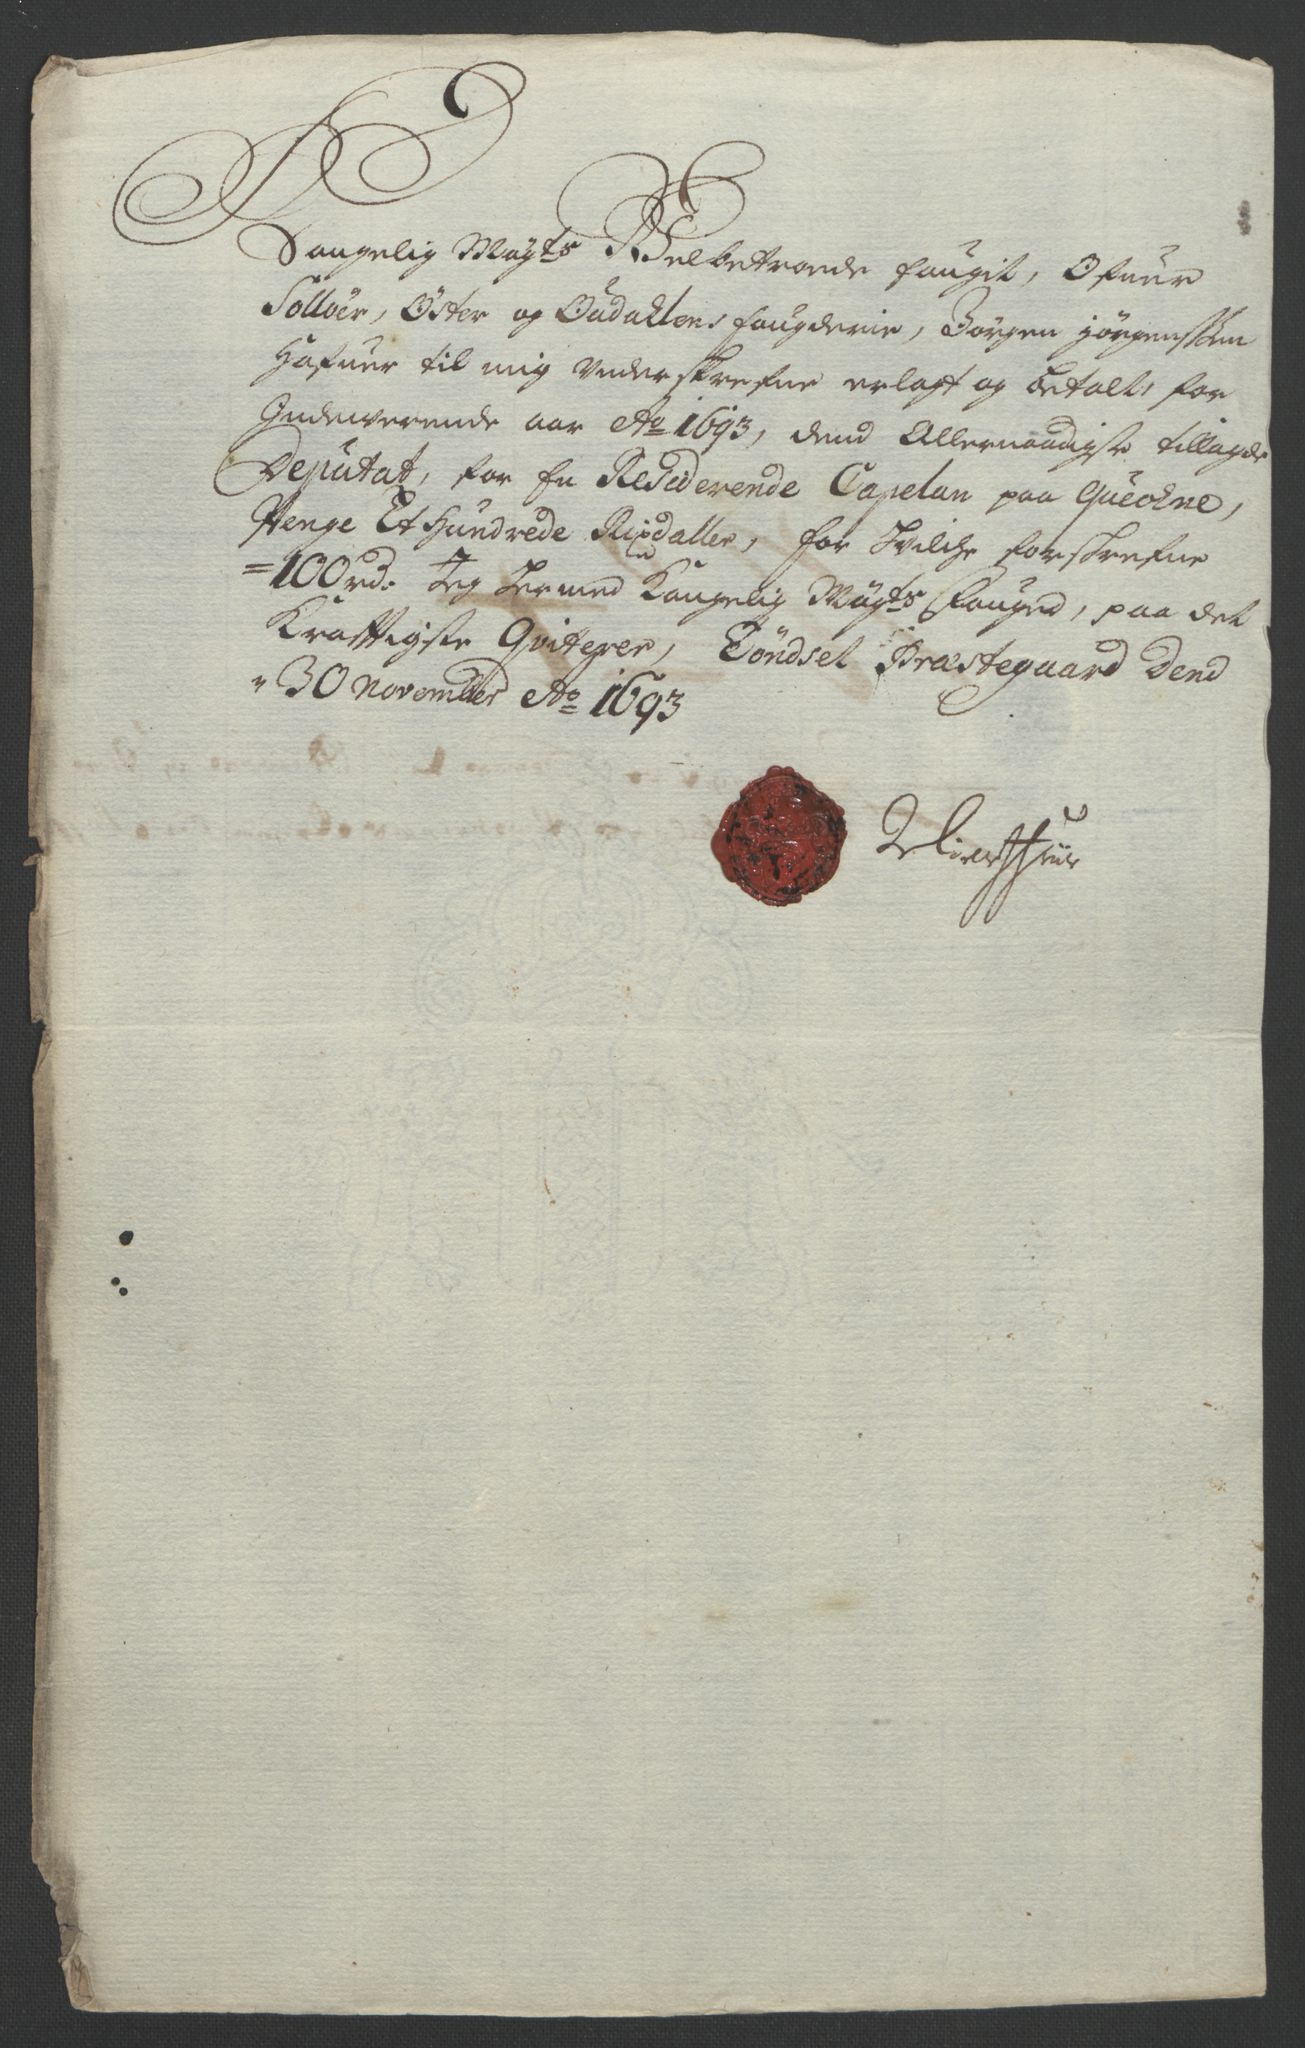 Kongelig Mayts Velbetroede fougit, Ofuer
Solløer, Øster og Oudahlens fougderie, Jørgen jørgenssøn
Hafuer til mig underskrefne erlagt og betalt, for
Indeverende aar Ao 1693, dend Allernaadigste tillagde
Deputat, for En Residerende Capelan paa Queckne,
Penge Et Hundrede Rixdaller, for hvilche forskrefne
=100 rd. Jeg hermed Kongelig Mayts Fouged, paa det
Kraftigste Qviterer, Töndset Præstegaard Dend
30 november Ao 1693